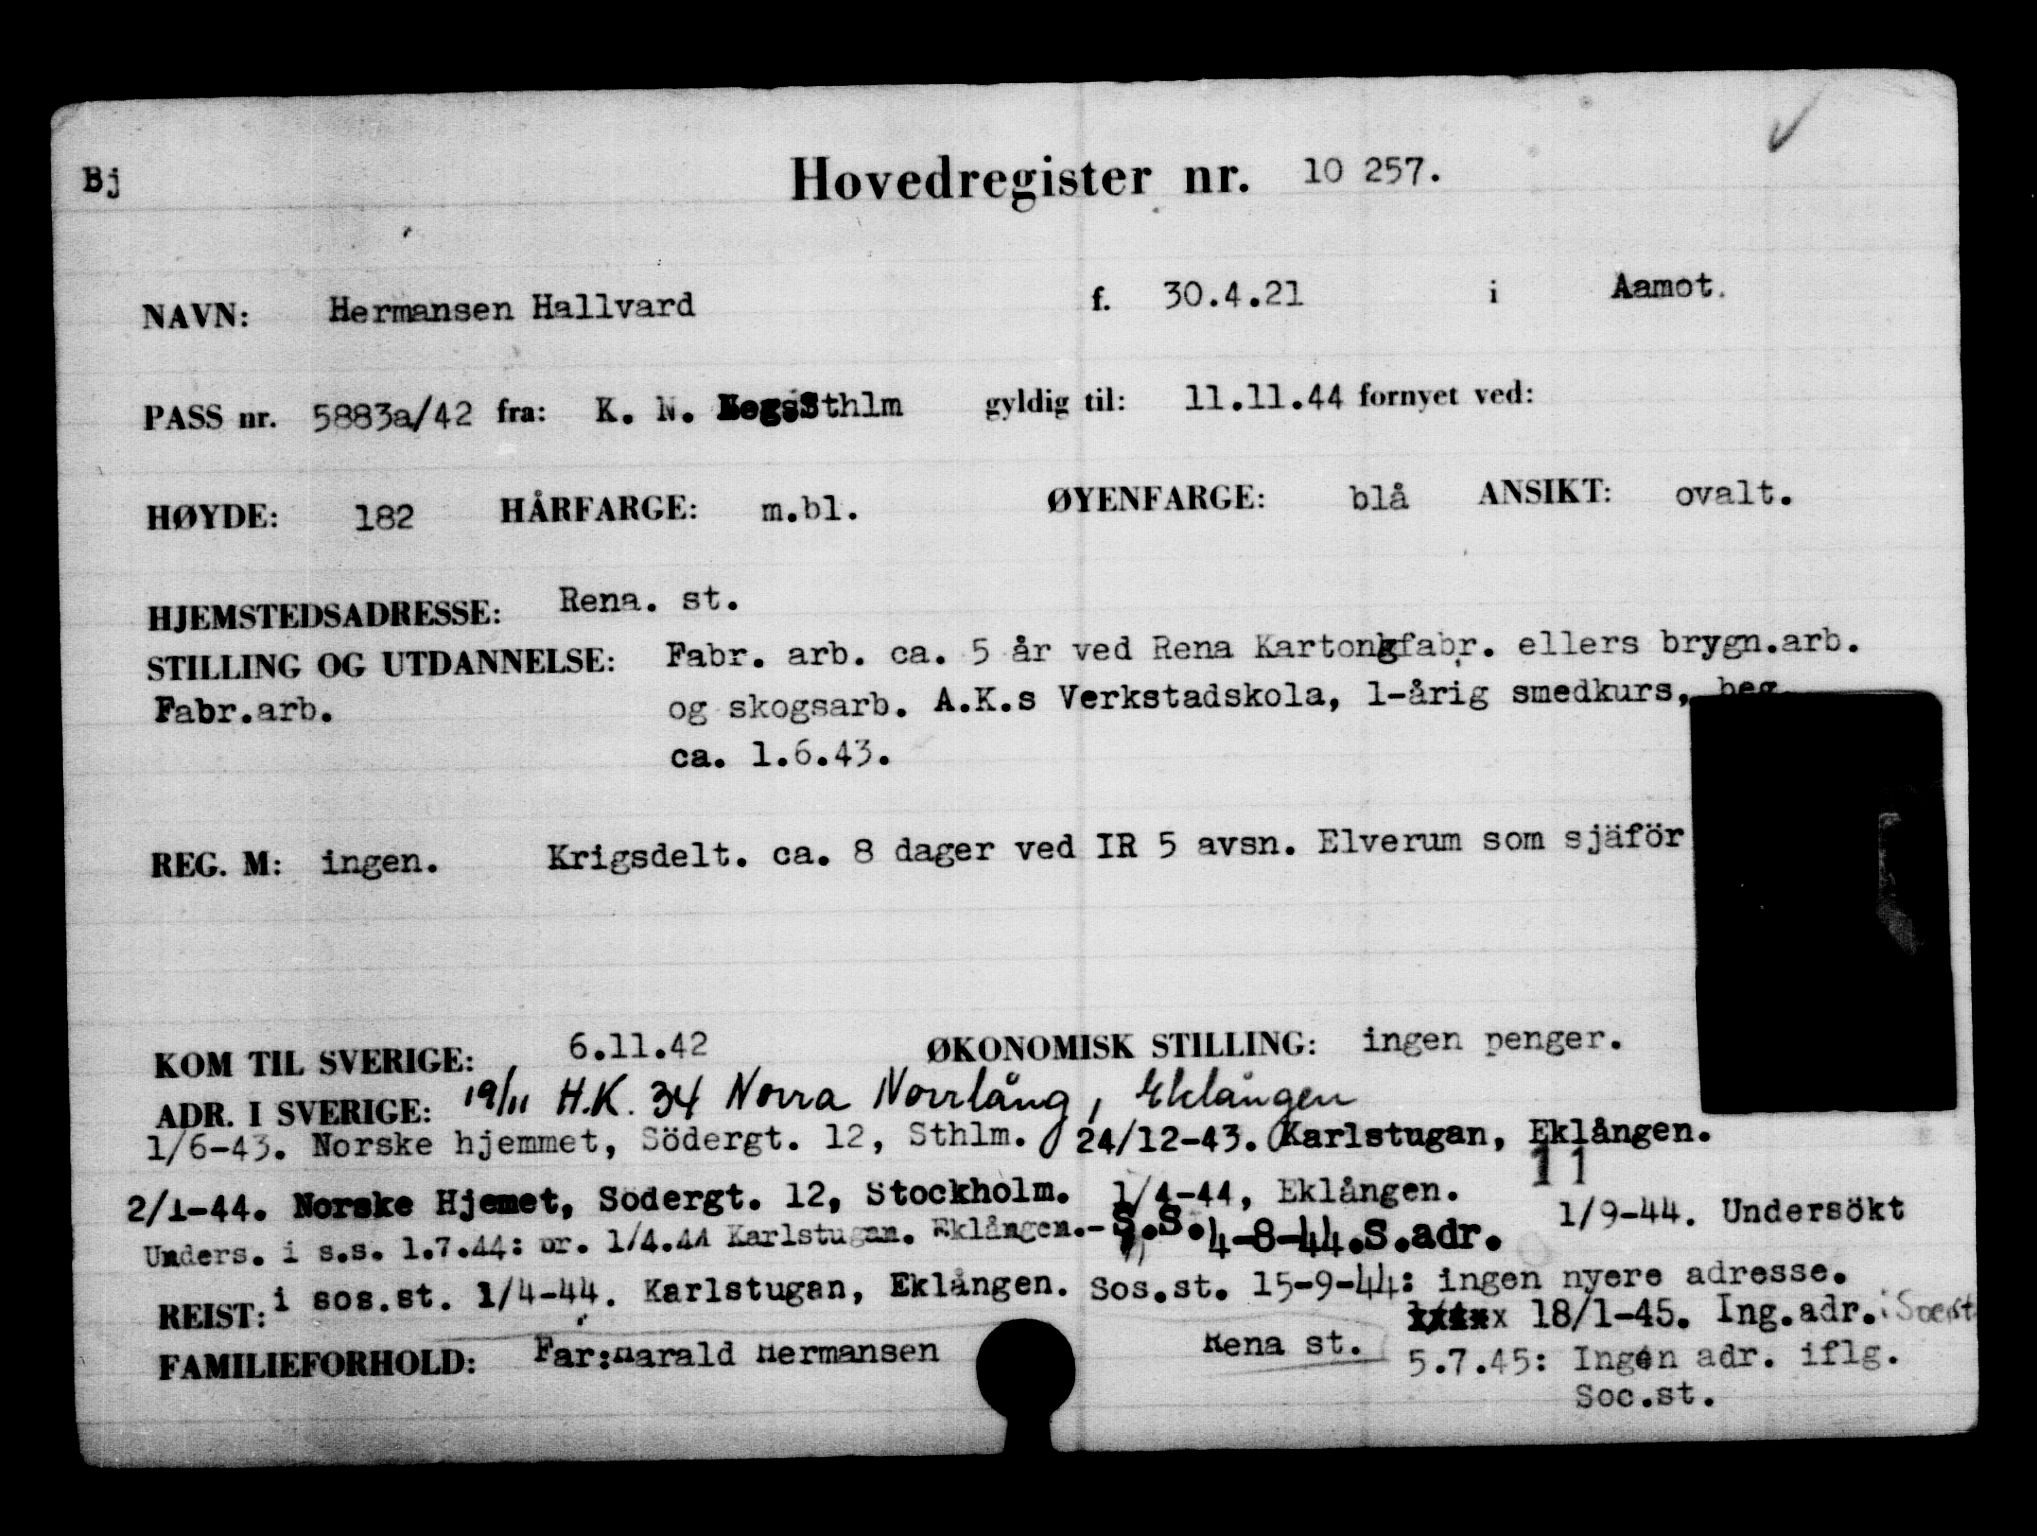 Bj
Hovedregister nr. 10 257.
NAVN: Hermansen Hallvard f. 30.4.21 i Aamot.
PASS nr. 5883a/42 fra: K. N. Sthlm gyldig til: 11.11.44 fornyet ved:
HØYDE: 182 HÅRFARGE: m.bl. ØYENFARGE: blå ANSIKT: ovalt.
HJEMSTEDSADRESSE: Rena. st.
STILLING OG UTDANNELSE: Fabr. arb. ca. 5 år ved Rena Kartongfabr. ellers brygn.arb.
Fabr.arb. og skogsarb. A.K.s Verkstadskola, 1-årig smedkurs, beg.
ca. 1.6.43.
REG. M: ingen. Krigsdelt. ca. 8 dager ved IR 5 avsn. Elverum som sjäför
KOM TIL SVERIGE: 6.11.42 ØKONOMISK STILLING: ingen penger.
ADR. I SVERIGE: 19/11 H.K. 34 Norra Norrlång, Eklången
1/6-43. Norske hjemmet, Södergt. 12, Sthlm. 24/12-43. Karlstugan, Eklången.
11
2/1-44. Norske Hjemet, Södergt. 12, Stockholm. 1/4-44, Eklången. 1/9-44. Undersökt
Unders. i s.s. 1.7.44: pr. 1/4.44 Karlstugan. Eklången.- S.S. 4-8-44.S.adr.
REIST: i sos.st. 1/4-44. Karlstugan, Eklången. Sos.st. 15-9-44: ingen nyere adresse.
18/1-45. Ing.adr. i Soc.st
FAMILIEFORHOLD: Far: Harald Hermansen Rena st. 5.7.45: Ingen adr. iflg.
Soc.st.